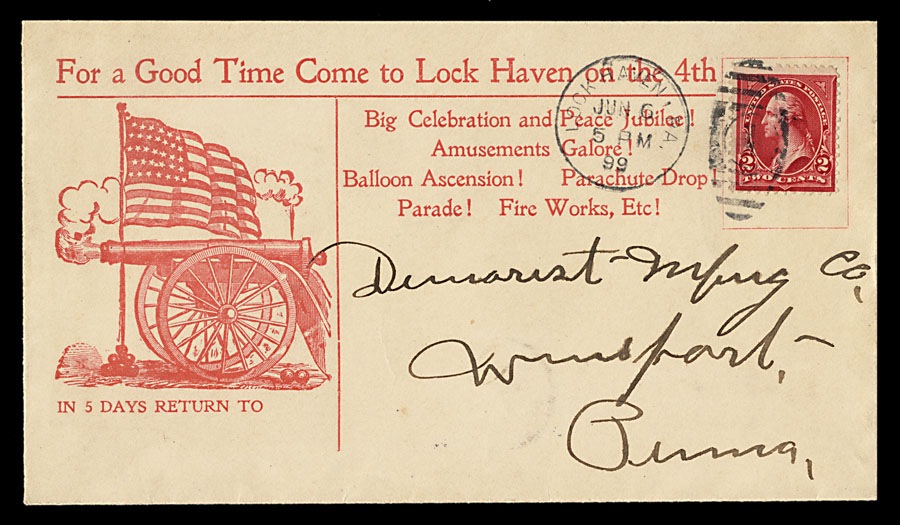 For a Good Time Come to Lock Haven on the 4th
Big Celebration and Peace Jubilee!
Amusements Galore!
Balloon Ascension! Parachute Drop!
Parade! Fire Works, Etc!
LOCK HAVEN, PA.
JUN 6
5 PM
99
UNITED STATES POSTAGE
2 2
TWO CENTS
Demorest Mfg Co,
Penna,
IN 5 DAYS RETURN TO